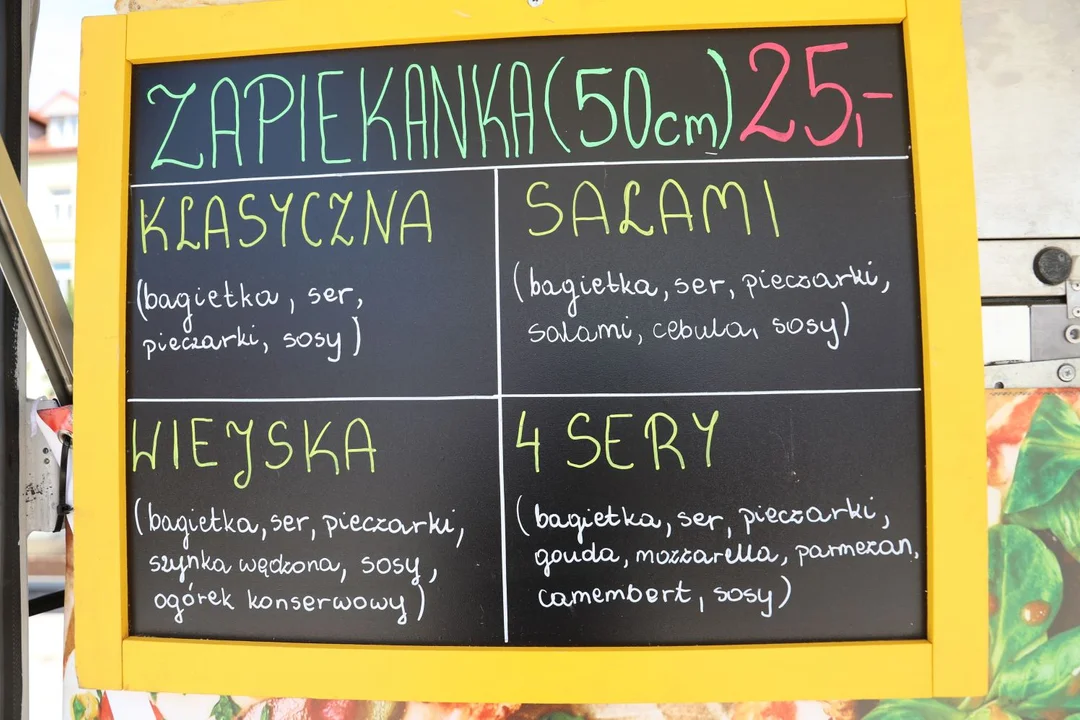 ZAPIEKANKA (50cm) 25,-
KLASYCZNA
(bagietka, ser,
pieczarki, sosy)
SALAMI
(bagietka, ser, pieczarki,
salami, cebula, sosy)
WIEJSKA
(bagietka, ser, pieczarki,
szynka wędzona, sosy,
ogórek konserwowy)
4 SERY
(bagietka, ser, pieczarki,
gouda, mozzarella, parmezan,
camembert, sosy)